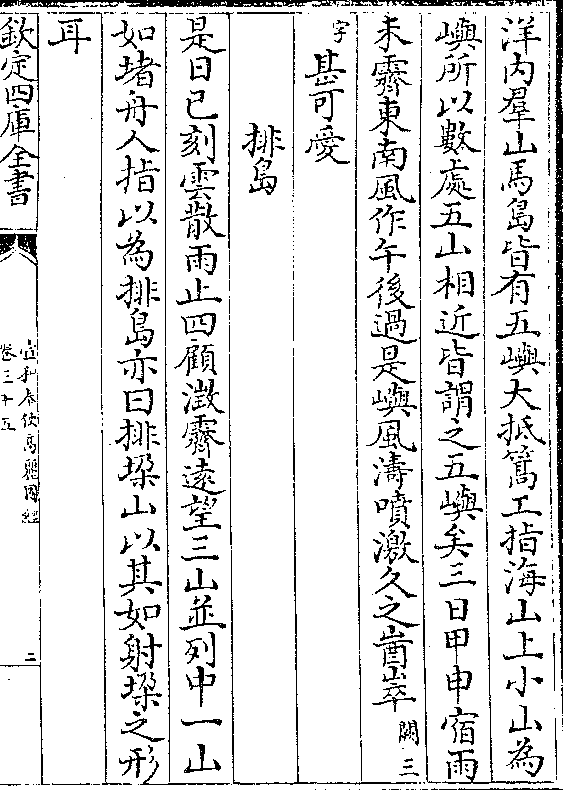 洋内羣山馬島皆有五嶼大抵篙工指海山上小山為
嶼所以數處五山相近皆謂之五嶼矣三日甲申宿雨
未霽東南風作午後過是嶼風濤噴激久之崷崒闕三
字甚可愛
排島
是日巳刻雲散雨止四顧澂霽逺望三山並列中一山
如堵舟人指以為排島亦曰排垜山以其如射垜之形
耳
欽定四庫全書
宣和奉使高麗圖經
卷三十五
二